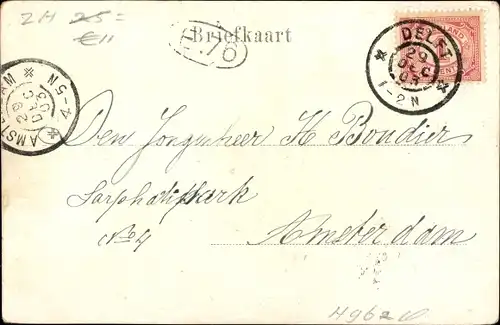 2H 25=
€11
Briefkaart
76
DELFT
29
DEC
03
1-2N
4-5N
Den Jongenheer H Boudier
Sarphatipark
No 4
Amsterdam
4962